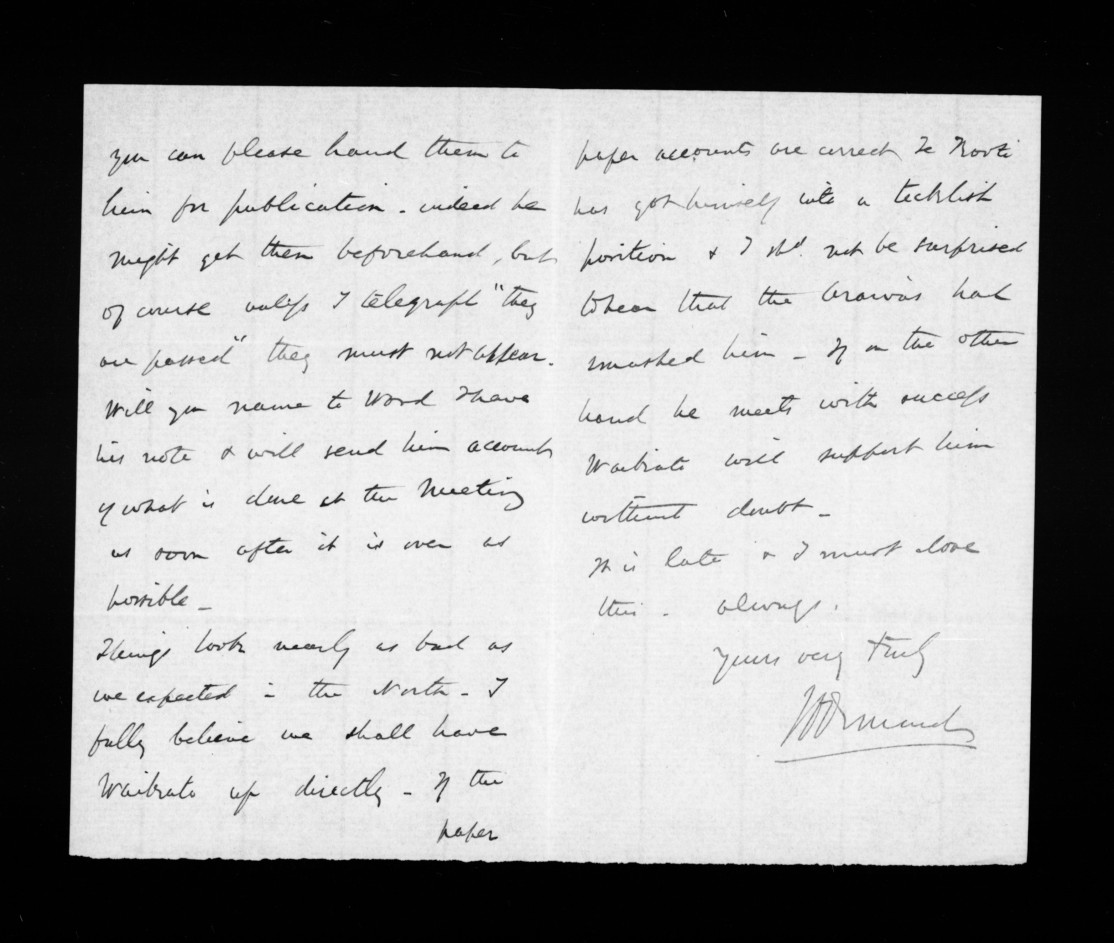 you can please hand them to
him for publication - indeed he
might get them beforehand, but
of course unless I telegraph "they
are passed" they must not appear.
Will you name to Word I have
his note & will send him accounts
of what is done at the Meeting
as soon after it is over as
possible -
Things look nearly as bad as
we expected in the North - I
fully believe we shall have
Waikato up directly - If the
paper
paper accounts are correct Te Kooti
has got himself into a ticklish
position & I shd. not be surprised
to hear that the Arawas had
smashed him - If on the other
hand he meets with success
Waikato will support him
without doubt -
It is late & I must close
this - always.
Yours very truly
JDOrmond